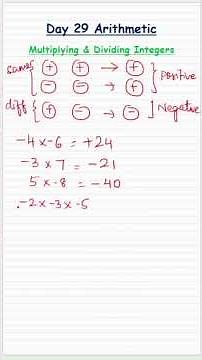 Day 29 Arithmetic
Multiplying & Dividing Integers
same { + + → + } Positive
− − → +
diff { + − → − } Negative
-4 x -6 = +24
-3 x 7 = -21
5 x -8 = -40
-2 x -3 x -5